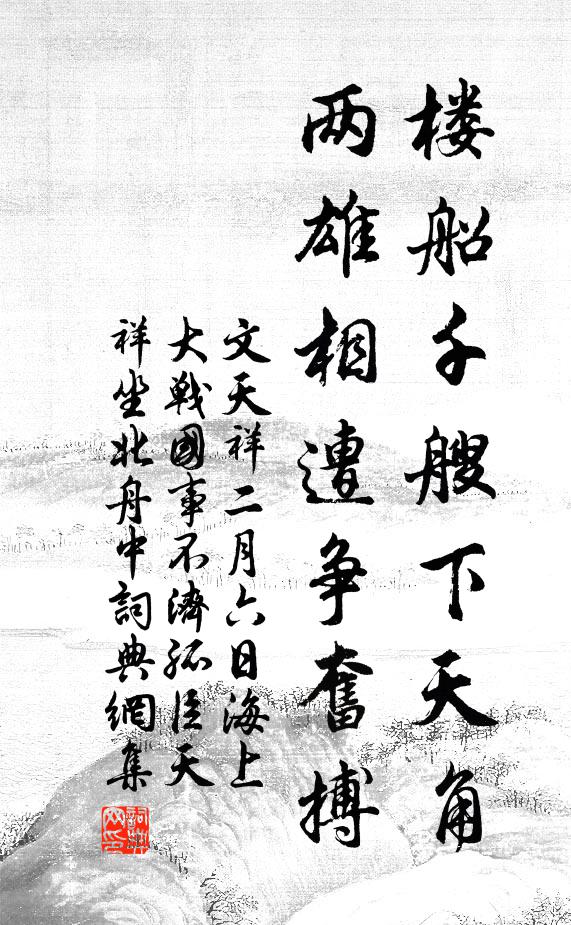 楼船千艘下天角
两雄相遭争奮搏
文天祥二月六日海上
大戦國事不濟孤臣天
祥坐北舟中詞典網集